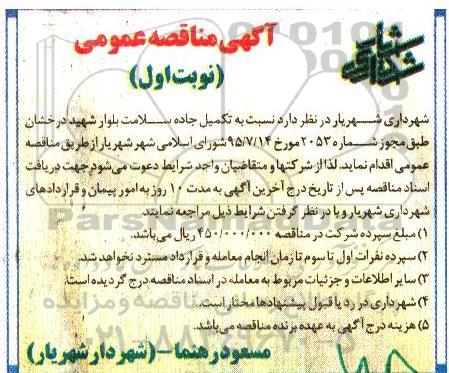 آگهی مناقصه عمومی
(نوبت اول)
شهرداری شهریار در نظر دارد نسبت به تکمیل جاده سلامت بلوار شهید درخشان
طبق مجوز شماره ۲۰۵۳ مورخ ۹۵/۷/۱۴ شورای اسلامی شهر شهریار از طریق مناقصه
عمومی اقدام نماید. لذا از شرکتها و متقاضیان واجد شرایط دعوت می‌شود جهت دریافت
اسناد مناقصه پس از تاریخ درج آخرین آگهی به مدت ۱۰ روز به امور پیمان و قراردادهای
شهرداری شهریار و با در نظر گرفتن شرایط ذیل مراجعه نمایند.
۱) مبلغ سپرده شرکت در مناقصه ۴۵۰/۰۰۰/۰۰۰ ریال می‌باشد.
۲) سپرده نفرات اول تا سوم تا زمان انجام معامله و قرارداد مسترد نخواهد شد.
۳) سایر اطلاعات و جزئیات مربوط به معامله در اسناد مناقصه درج گردیده است.
۴) شهرداری در رد یا قبول پیشنهادها مختار است.
۵) هزینه درج آگهی به عهده برنده مناقصه می‌باشد.
مسعود رهنما - (شهردار شهریار)